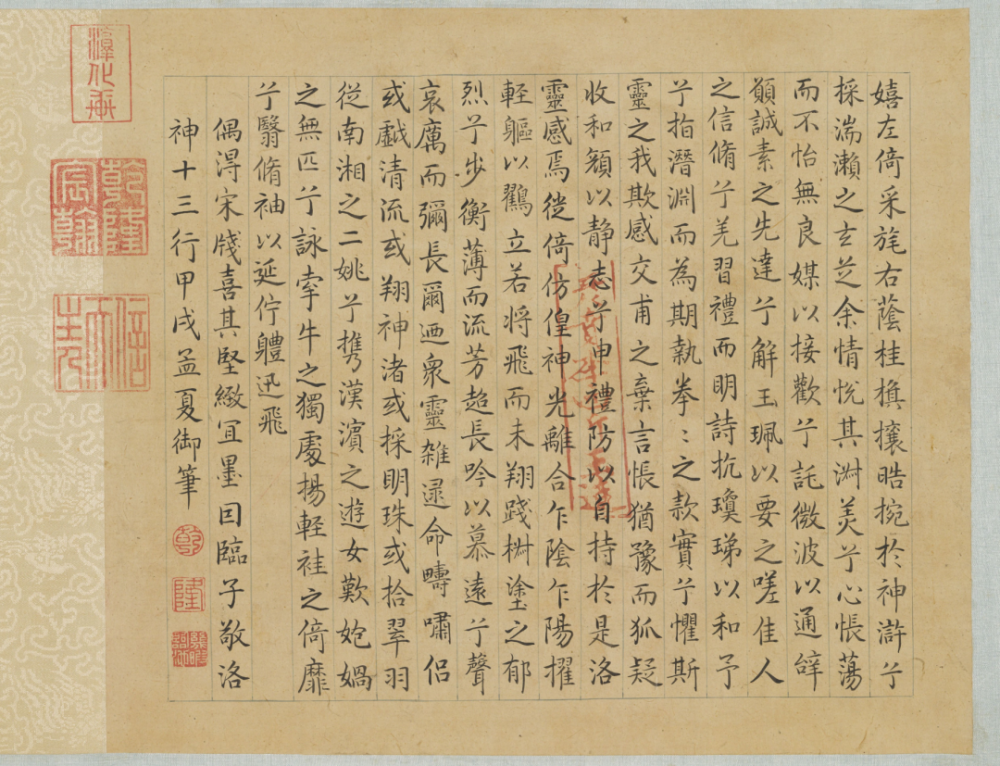 嬉左倚采旄右蔭桂旗攘晧捥於神滸兮
採湍瀨之玄芝余情悅其淑美兮心悵蕩
而不怡無良媒以接歡兮託微波以通辝
願誠素之先達兮解玉珮以要之嗟佳人
之信脩兮羌習禮而明詩抗瓊珶以和予
兮指潛淵而為期執拳〻之款實兮懼斯
靈之我欺感交甫之棄言悵猶豫而狐疑
收和顏以靜志兮申禮防以自持於是洛
靈感焉徙倚仿偟神光離合乍陰乍陽擢
輕軀以鸖立若将飛而未翔踐椒塗之郁
烈兮步衡薄而流芳超長吟以慕遠兮聲
哀厲而彌長爾迺眾靈雜遝命疇嘯侶
或戱清流或翔神渚或採明珠或拾翠羽
從南湘之二姚兮携漢濵之遊女歎匏媧
之無匹兮詠牽牛之獨處揚輕袿之倚靡
兮翳脩袖以延佇軆迅飛
偶得宋牋喜其堅緻宜墨因臨子敬洛
神十三行甲戌孟夏御筆
乾
隆
淳化軒
乾隆宸翰
信天主人